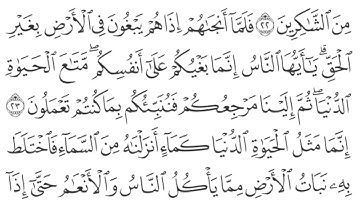 مِنَ ٱلشَّٰكِرِينَ ﴿٢٢﴾ فَلَمَّآ أَنجَىٰهُمْ إِذَا هُمْ يَبْغُونَ فِى ٱلْأَرْضِ بِغَيْرِ
ٱلْحَقِّ ۗ يَٰٓأَيُّهَا ٱلنَّاسُ إِنَّمَا بَغْيُكُمْ عَلَىٰٓ أَنفُسِكُم ۖ مَّتَٰعَ ٱلْحَيَوٰةِ
ٱلدُّنْيَا ۖ ثُمَّ إِلَيْنَا مَرْجِعُكُمْ فَنُنَبِّئُكُم بِمَا كُنتُمْ تَعْمَلُونَ ﴿٢٣﴾
إِنَّمَا مَثَلُ ٱلْحَيَوٰةِ ٱلدُّنْيَا كَمَآءٍ أَنزَلْنَٰهُ مِنَ ٱلسَّمَآءِ فَٱخْتَلَطَ
بِهِۦ نَبَاتُ ٱلْأَرْضِ مِمَّا يَأْكُلُ ٱلنَّاسُ وَٱلْأَنْعَٰمُ حَتَّىٰٓ إِذَآ